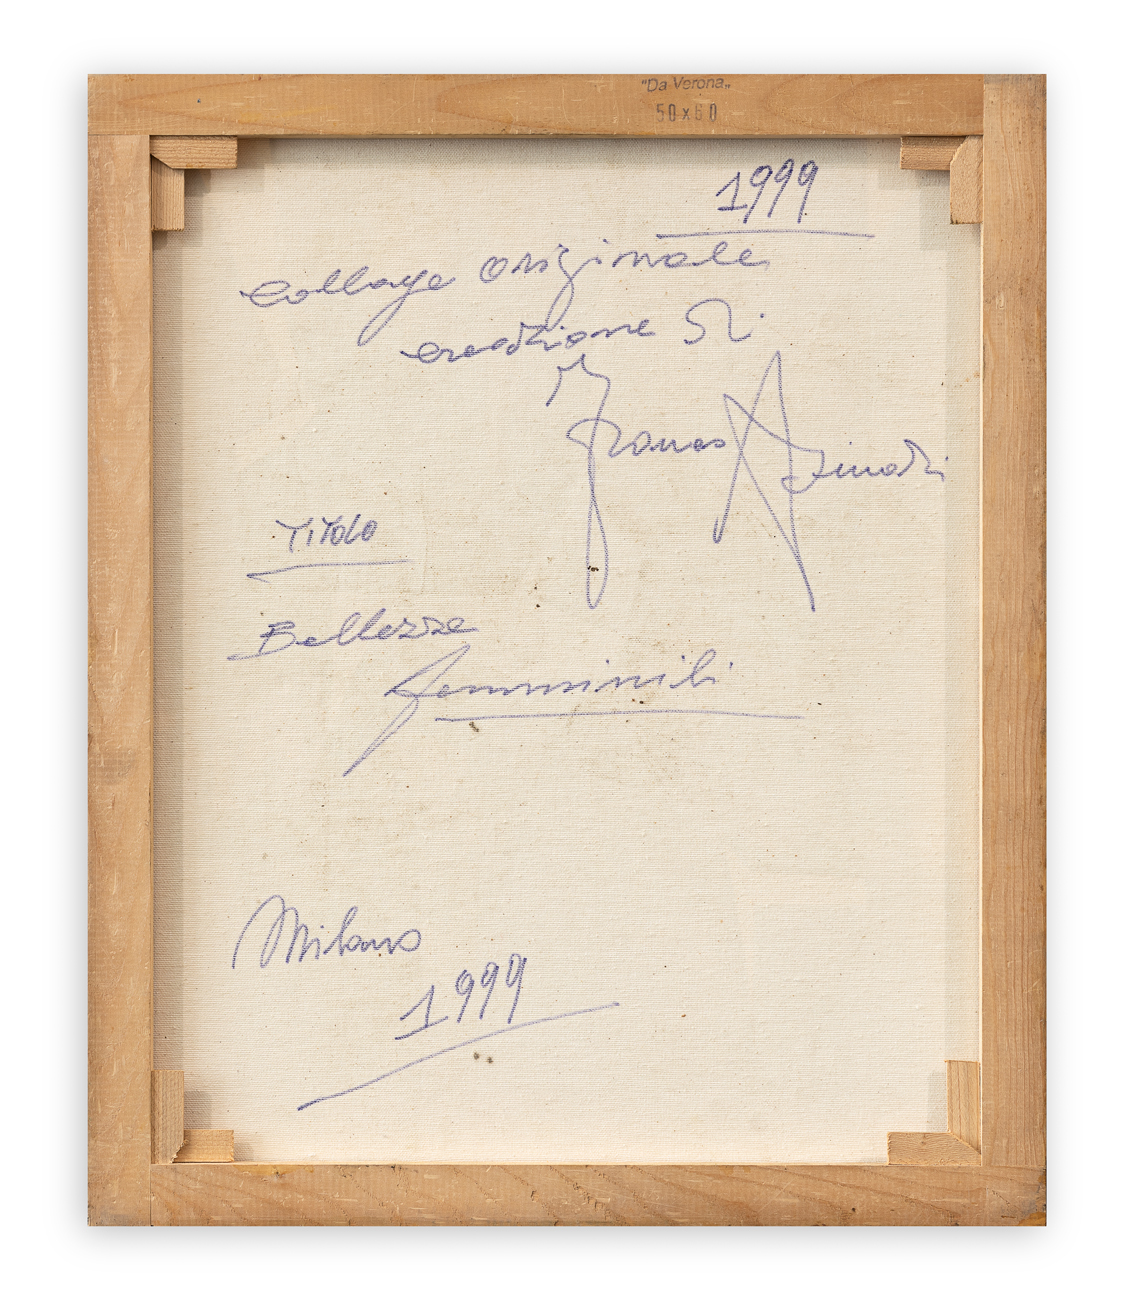 "Da Verona„
50x60
1999
Collage originale
creazione di
Franco Azimati
TiTolo
Bellezze
femminili
Milano
1999